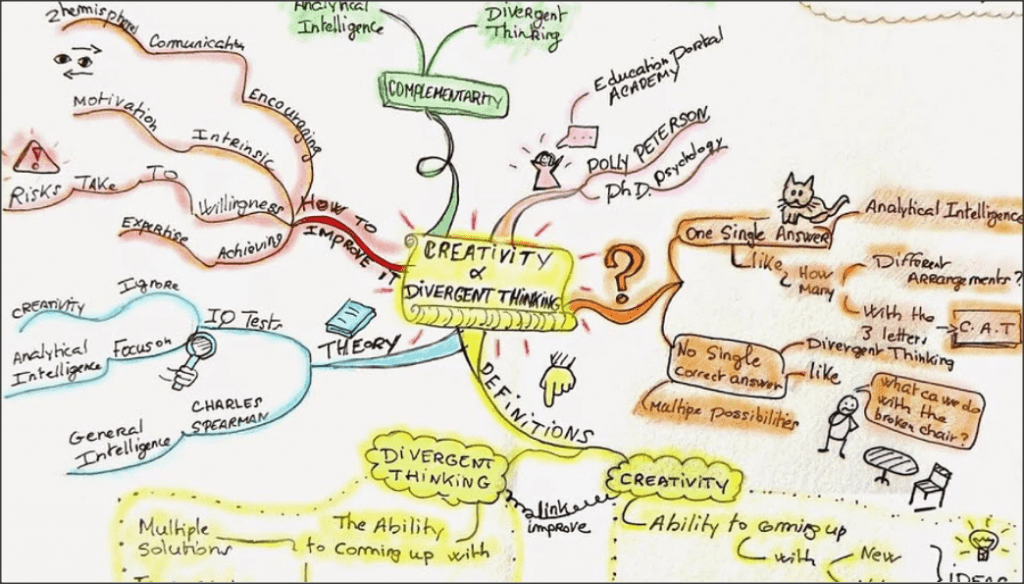 Analytical
Intelligence
Divergent
Thinking
COMPLEMENTARITY
2hemispheres
Communication
Encouraging
Motivation
Intrinsic
Risks TAKE TO
Willingness
Expertise
Achieving
HOW TO
IMPROVE IT
Education Portal
ACADEMY
POLLY PETERSON
Ph.D. Psychology
CREATIVITY
&
DIVERGENT THINKING
?
One Single Answer
Analytical Intelligence
like
How
Many
Different
Arrangements?
With the
3 letters
C.A.T
No Single
Correct answer
Divergent Thinking
like
Multipe possibilities
What ca we do
with the
broken chair?
THEORY
IQ Tests
Ignore
CREATIVITY
Focus on
Analytical
Intelligence
CHARLES
SPEARMAN
General
Intelligence
DEFINITIONS
DIVERGENT
THINKING
link
improve
CREATIVITY
The Ability
to Coming up with
Multiple
Solutions
Ability to coming up
with
New